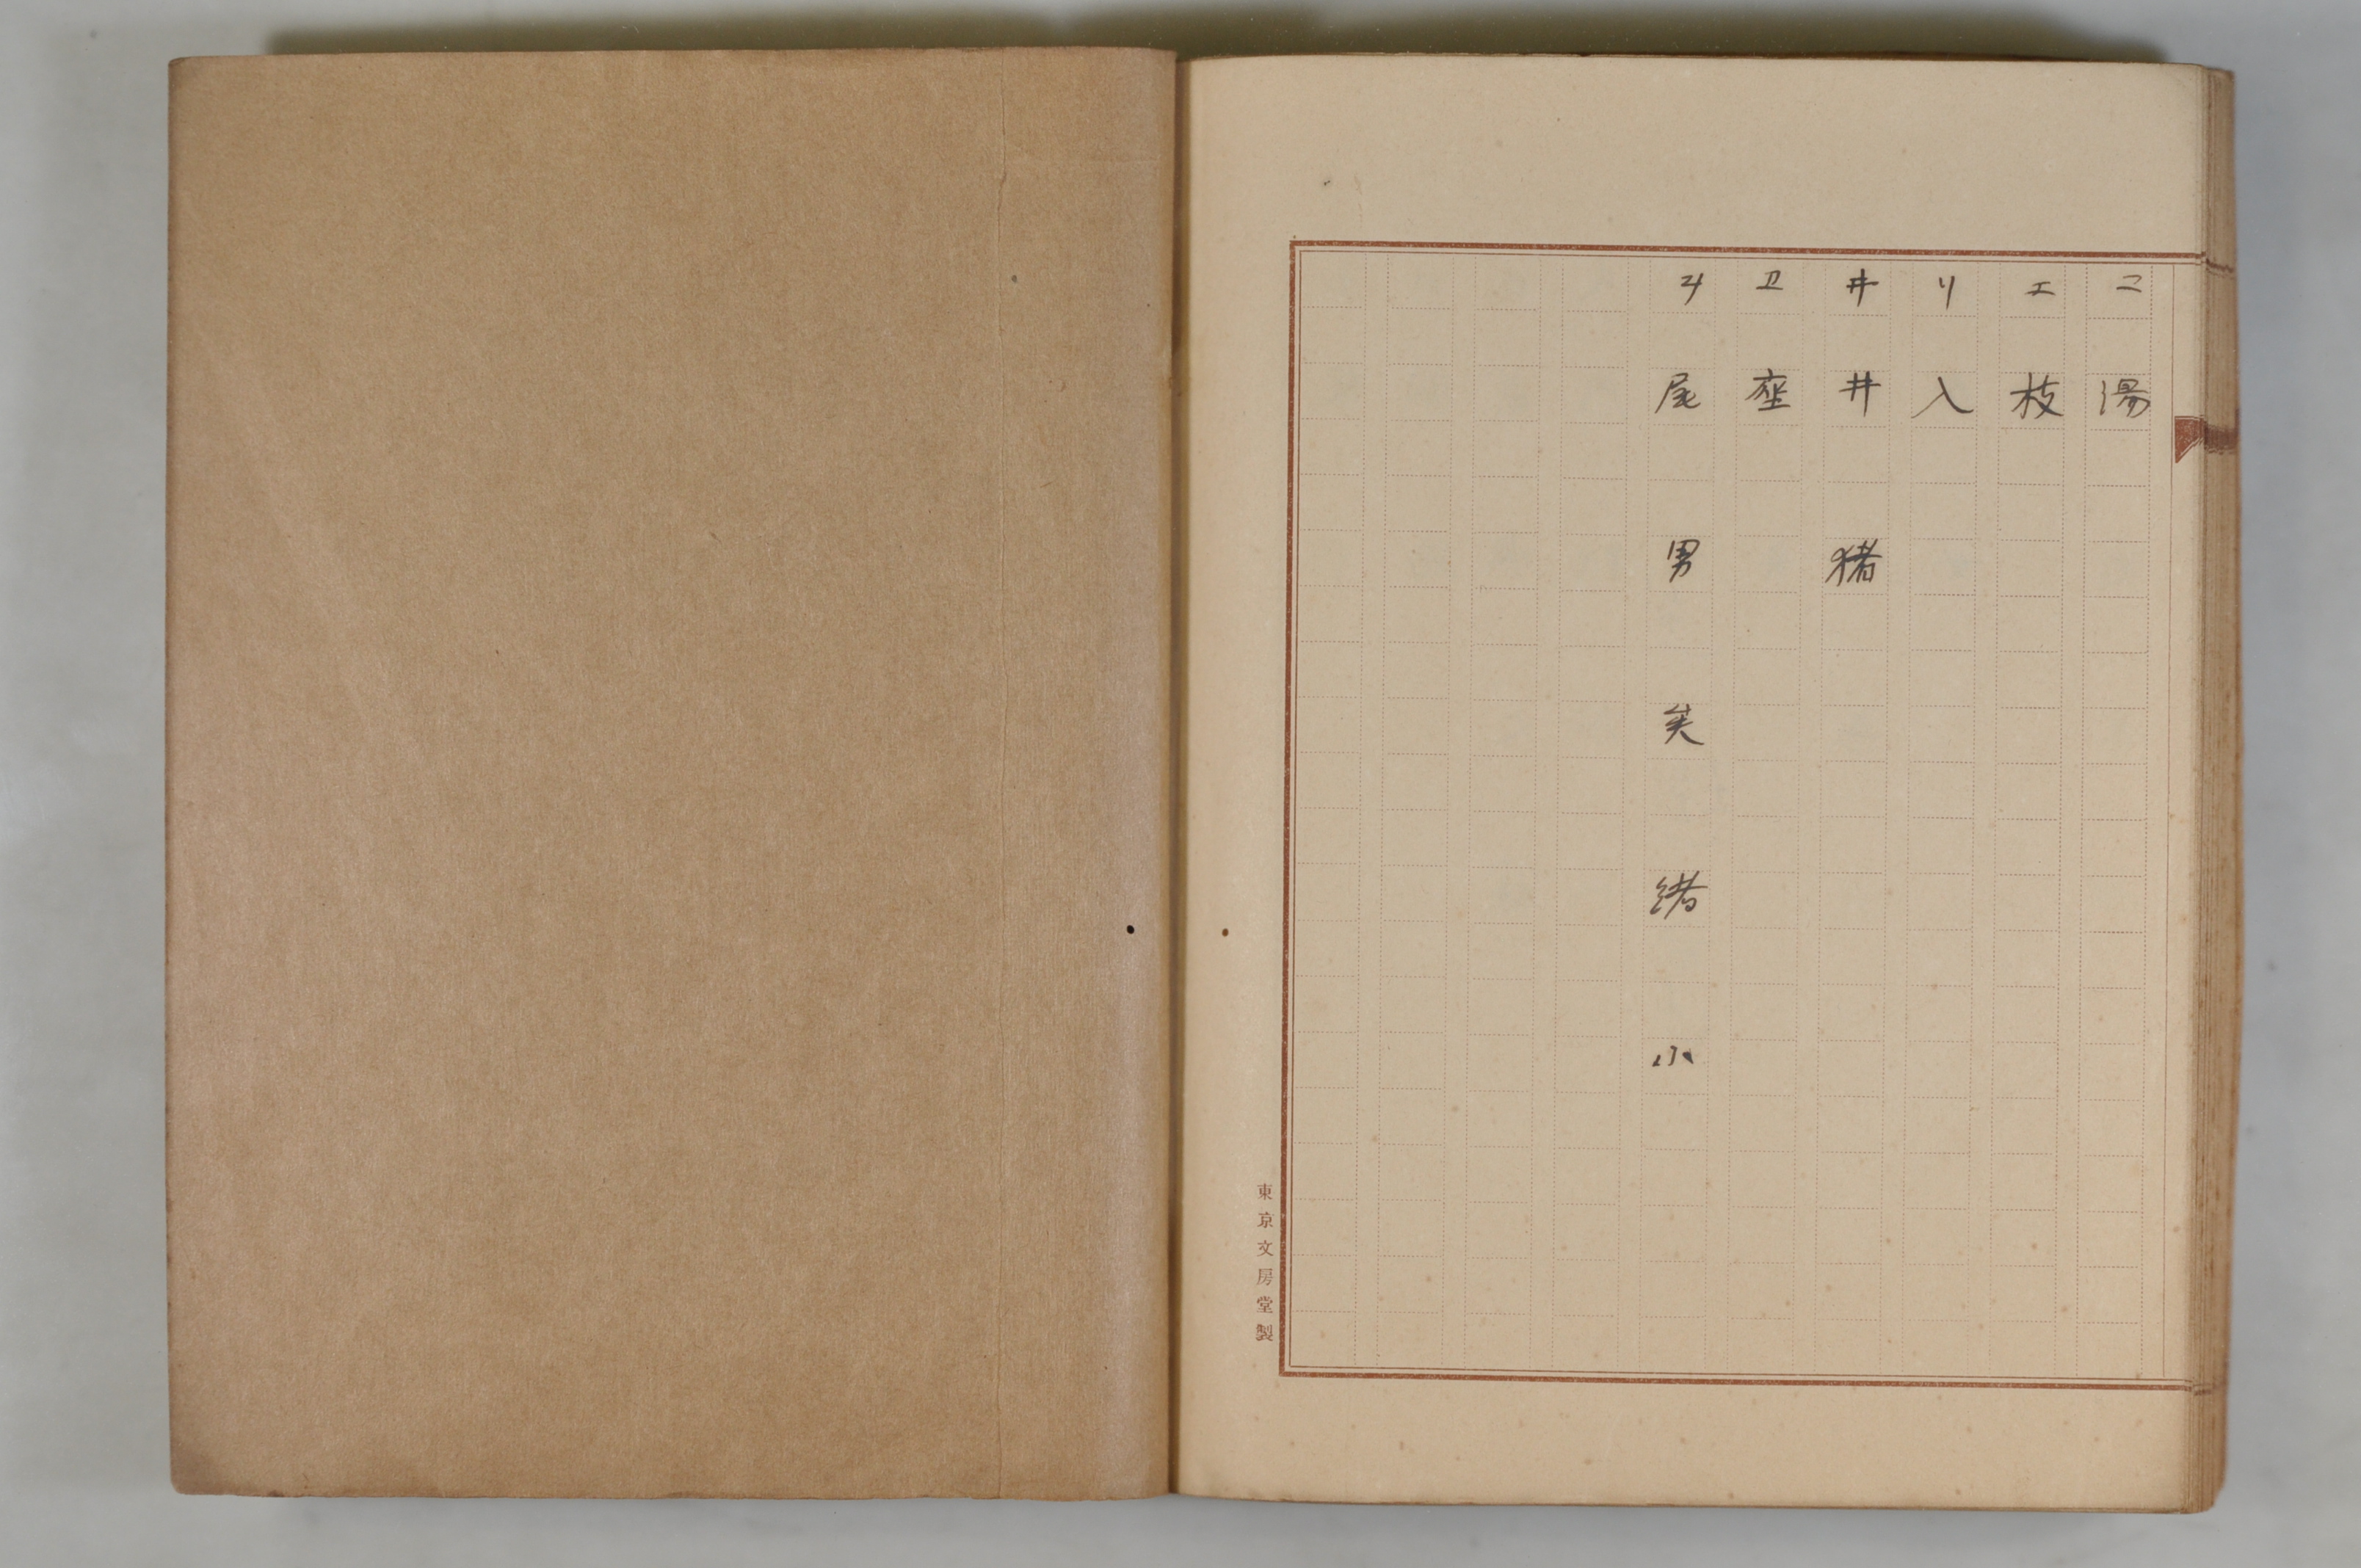 ユ 湯
エ 枝
リ 入
井 井 猪
ヱ 座
ヲ 尾 男 矣 緒 小
東京文房堂製